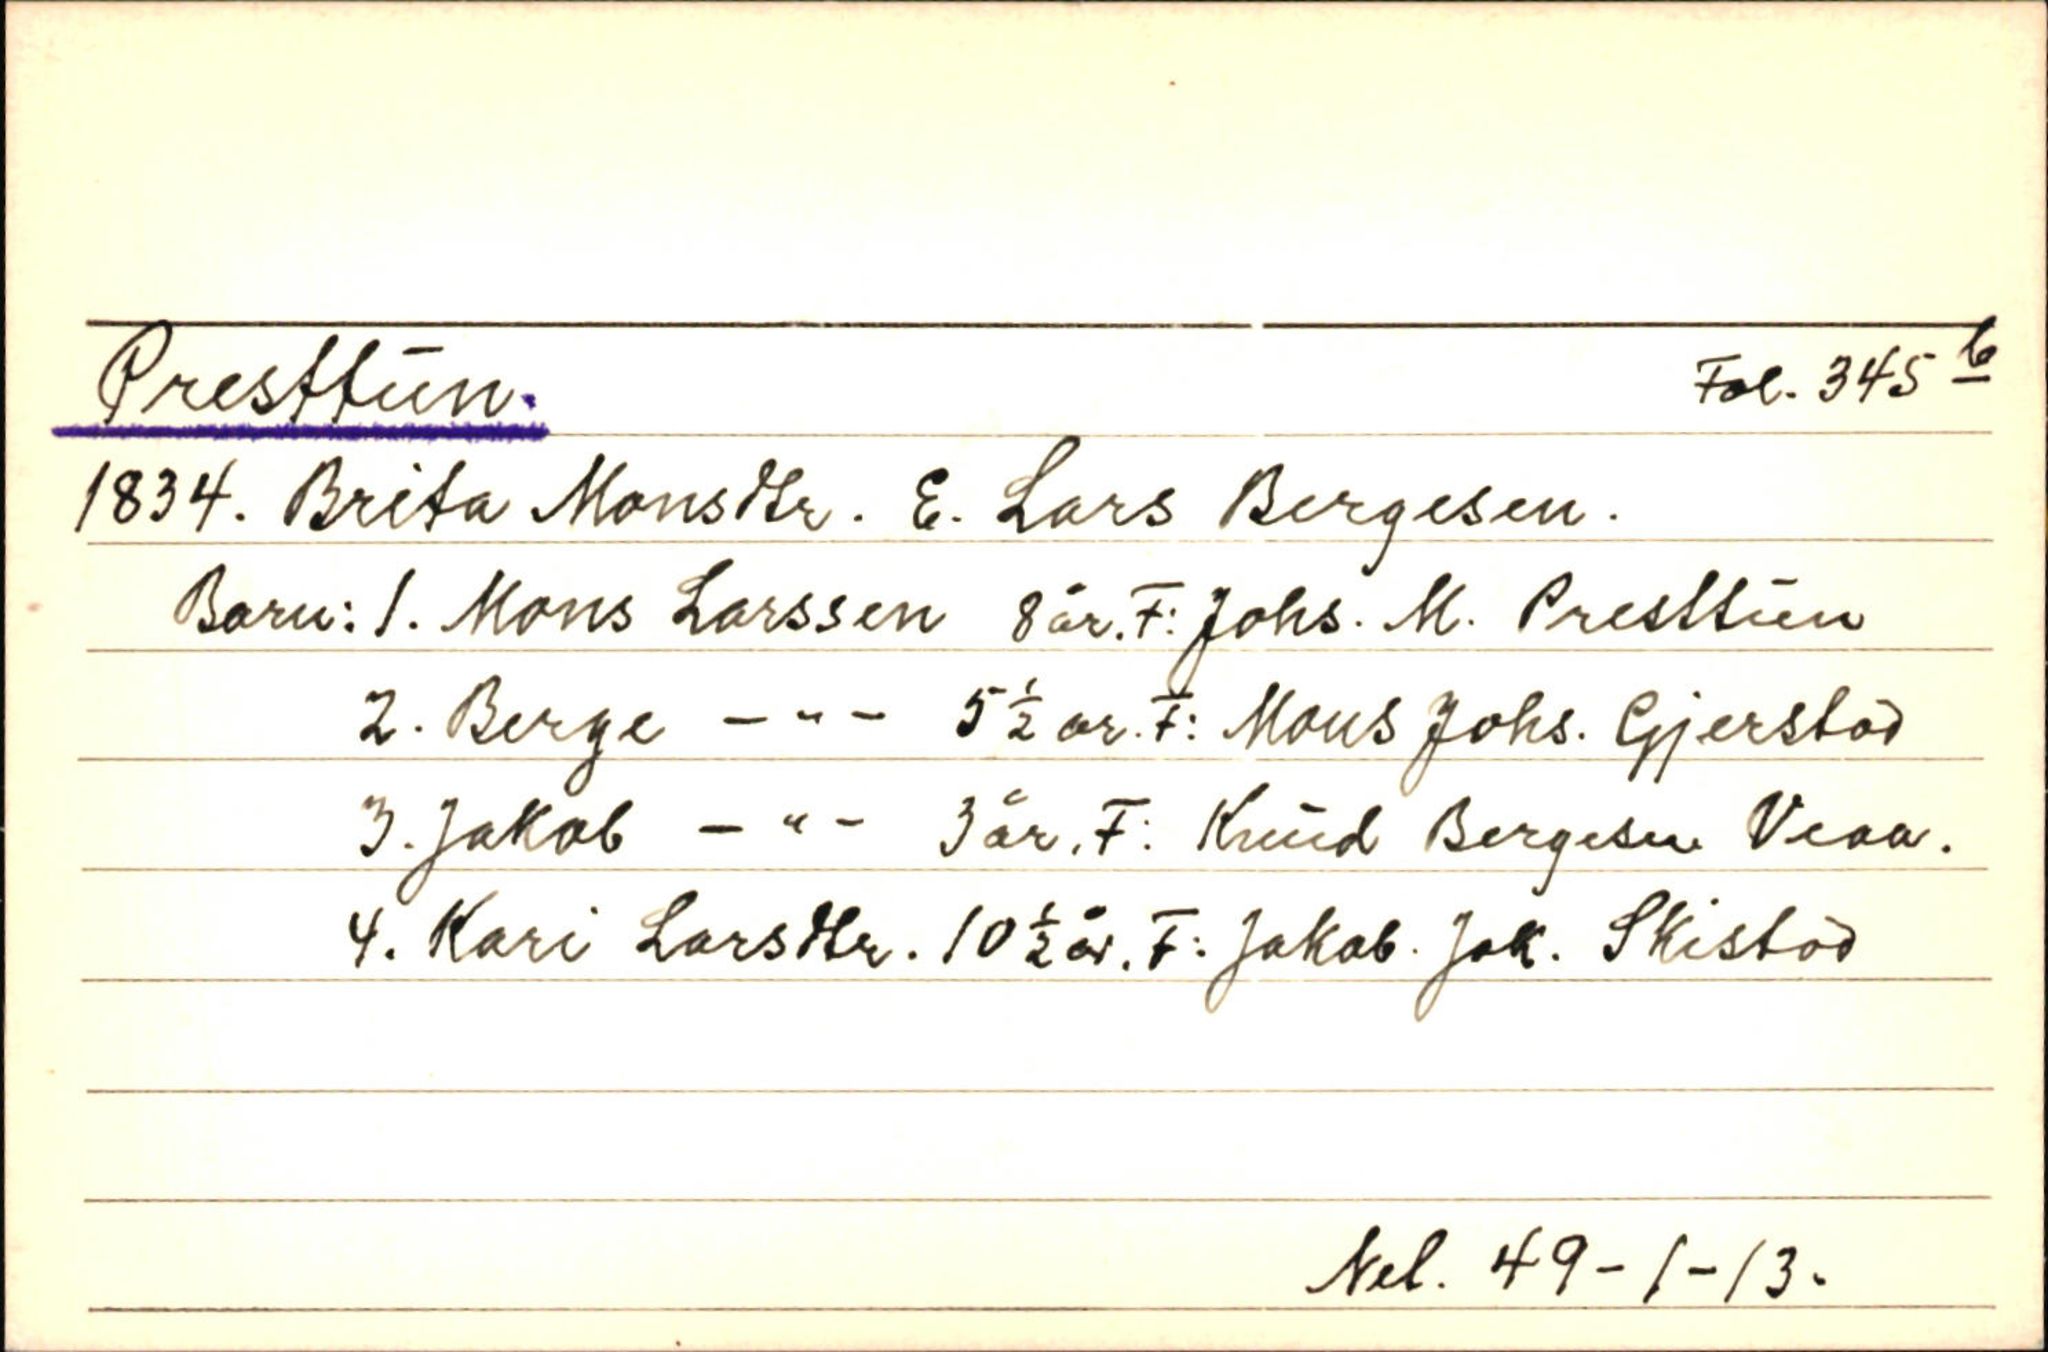 Presttun. Fol. 345 b
1834. Brita Monsdtr. E. Lars Bergesen.
Barn: 1. Mons Larssen 8 år. F: Johs. M. Presttun
2. Berge — " — 5 ½ år. F: Mons Johs. Gjerstad
3. Jakob — " — 3 år. F: Knud Bergesen Veaa.
4. Kari Larsdtr. 10 ½ år. F: Jakob Jak. Skistad
Nel. 49-1-13.